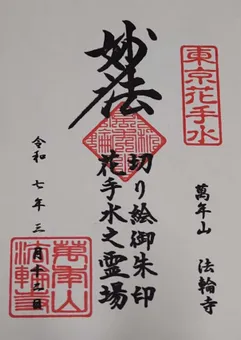 東京花手水
萬年山 法輪寺
妙法
切り絵御朱印
花手水之霊場
令和七年三月十九日
萬年山
法輪寺